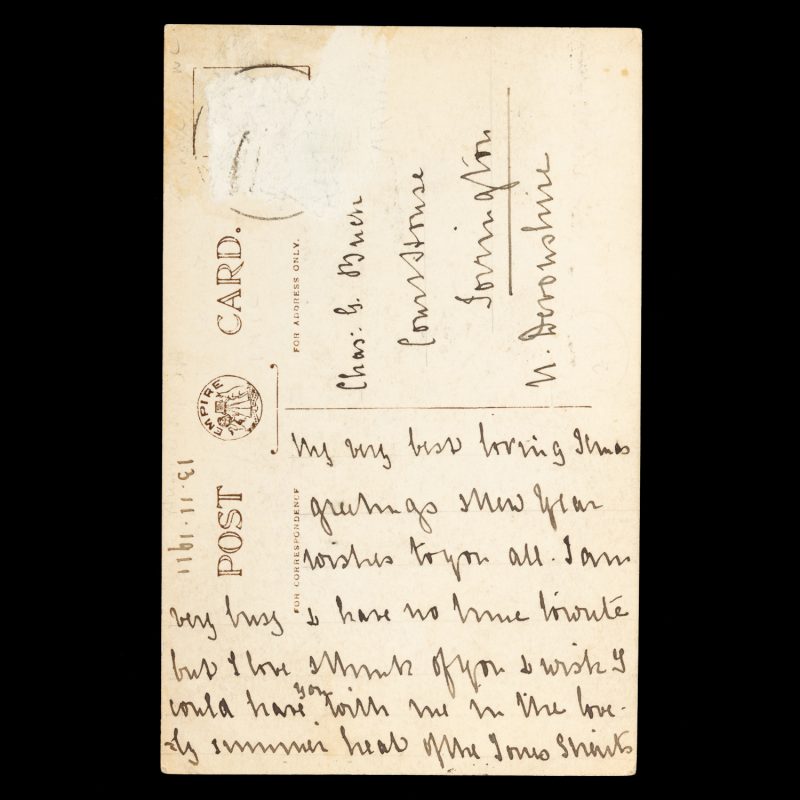 POST CARD.
EMPIRE
FOR CORRESPONDENCE
FOR ADDRESS ONLY.
13·11·1911
Chas: G. Buck
Court House
Torrington
N. Devonshire
My very best loving Xmas
greetings & New Year
wishes to you all. I am
very busy & have no time to write
but I love & think of you & wish I
could have you with me in the love-
ly summer heat of the Torres Straits